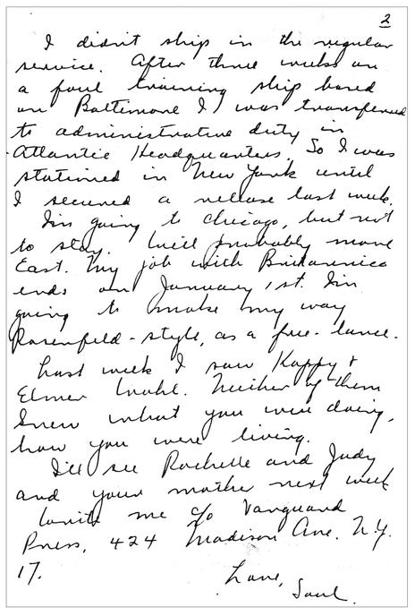 2
I didn't ship in the regular
service. After three weeks on
a foul training ship based
on Baltimore I was transferred
to administrative duty in
Atlantic Headquarters. So I was
stationed in New York until
I secured a release last week.
I'm going to Chicago, but not
to stay. We'll probably move
East. My job with Britannica
ends on January 1st. I'm
going to make my way
Rosenfeld-style, as a free-lance.
Last week I saw Kappy &
Elmer Wohl. Neither of them
knew what you were doing,
how you were living.
I'll see Rochelle and Judy
and your mother next week
Write me c/o Vanguard
Press, 424 Madison Ave. N.Y.
17.
Love,
Saul.